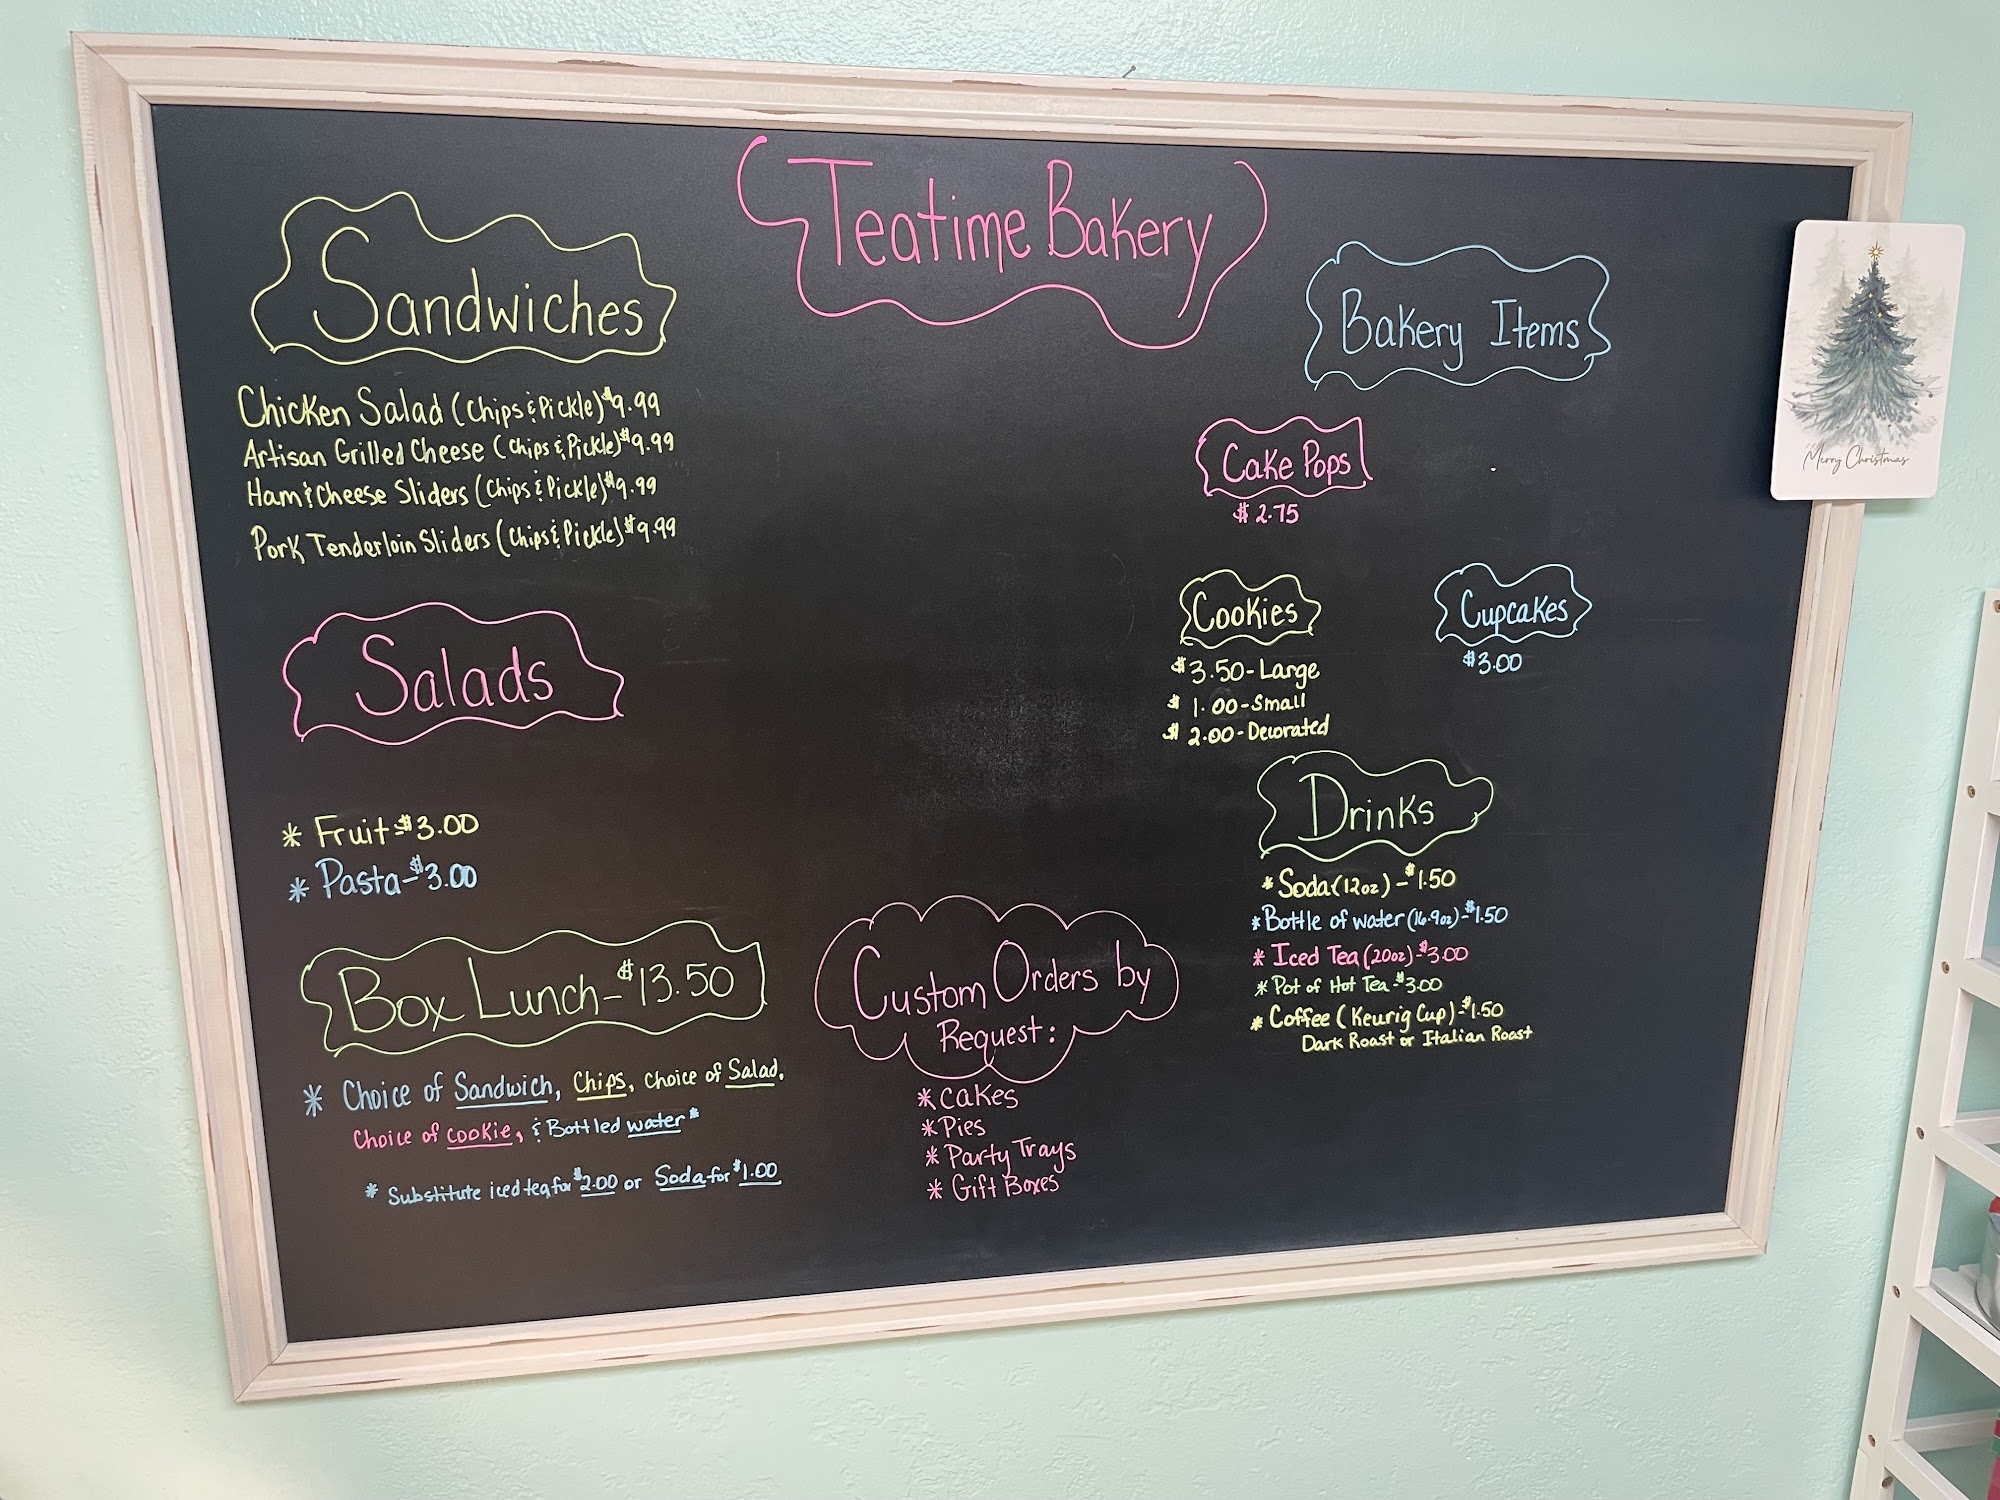 Teatime Bakery
Sandwiches
Chicken Salad (Chips & Pickle) $9.99
Artisan Grilled Cheese (Chips & Pickle) $9.99
Ham & Cheese Sliders (Chips & Pickle) $9.99
Pork Tenderloin Sliders (Chips & Pickle) $9.99
Salads
* Fruit - $3.00
* Pasta - $3.00
Box Lunch - $13.50
* Choice of Sandwich, Chips, choice of Salad,
Choice of cookie, & Bottled water *
* Substitute iced tea for $2.00 or Soda for $1.00
Custom Orders by
Request:
* Cakes
* Pies
* Party Trays
* Gift Boxes
Bakery Items
Cake Pops
$2.75
Cookies
$3.50 - Large
$1.00 - Small
$2.00 - Decorated
Cupcakes
$3.00
Drinks
* Soda (12oz) - $1.50
* Bottle of water (16.9oz) - $1.50
* Iced Tea (20oz) - $3.00
* Pot of Hot Tea - $3.00
* Coffee (Keurig Cup) - $1.50
Dark Roast or Italian Roast
Merry Christmas